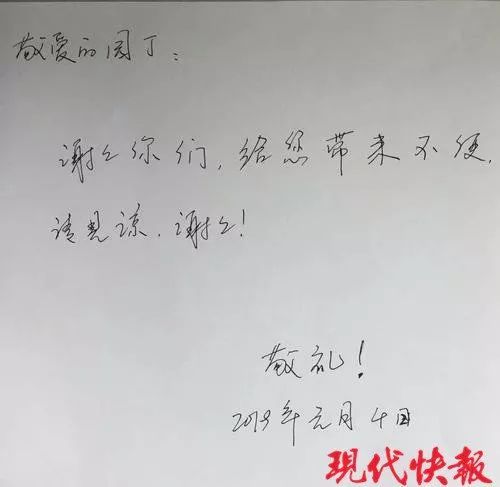 敬爱的园丁：
谢谢你们，给您带来不便，
请见谅.谢谢！
敬礼！
2019年元月4日
现代快報